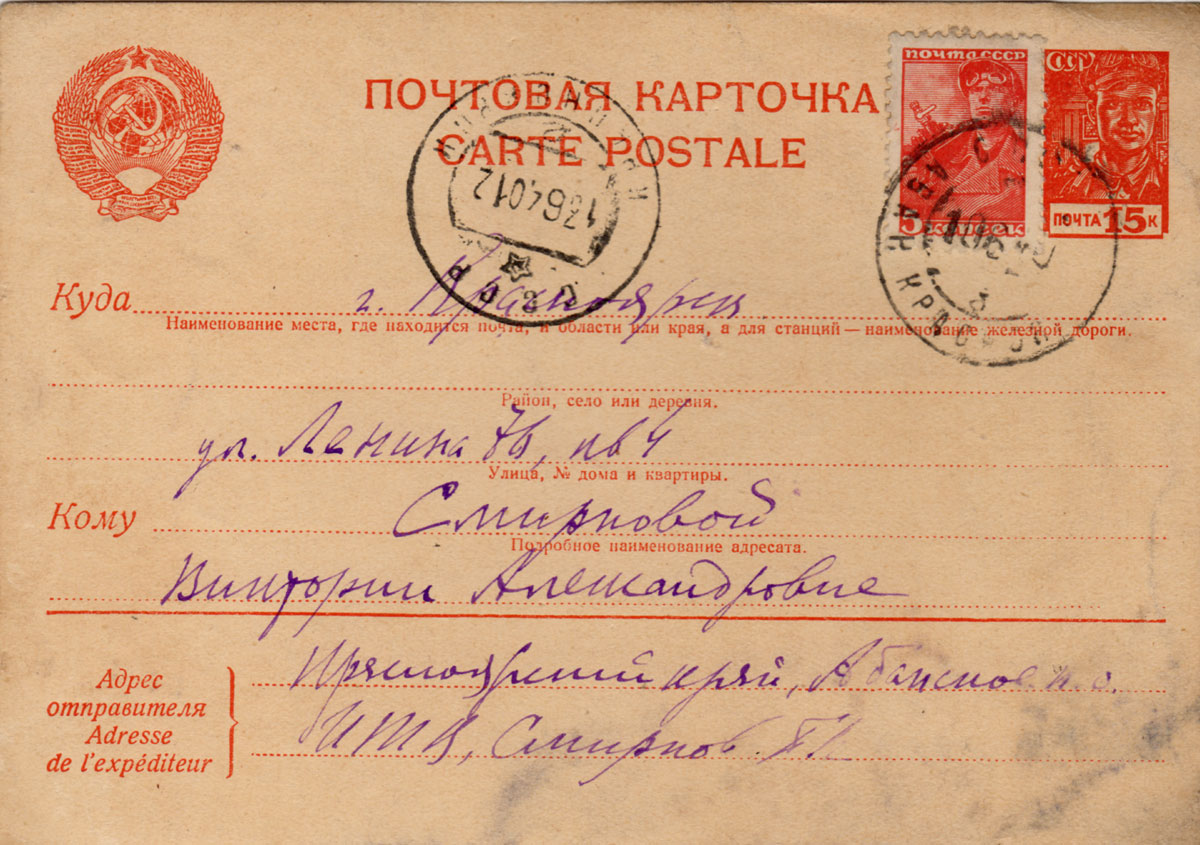 ПОЧТОВАЯ КАРТОЧКА
CARTE POSTALE
ПОЧТА СССР
5 КОПЕЕК
СССР
ПОЧТА 15 К
КРАСНОЯРСК
1764012
СССР
АБАН КРАСНОЯ
Куда г. Красноярск
Наименование места, где находится почта, и области или края, а для станций — наименование железной дороги.
Район, село или деревня.
ул. Ленина, кв 4
Улица, № дома и квартиры.
Кому Смирновой
Подробное наименование адресата.
Виктории Александровне
Адрес отправителя
Adresse de l'expéditeur
Красноярский край, Абанское п.о.
Смирнов